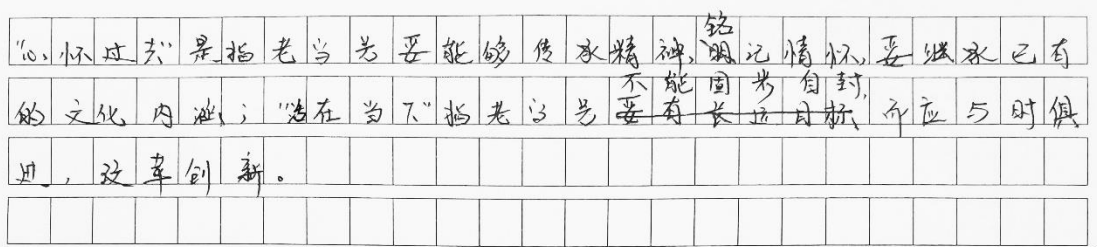 “心怀过去”是指老当号要能够传承精神，铭记情怀，要继承已有
的文化内涵；“活在当下”指老当号不能固步自封，而应与时俱
进，改革创新。